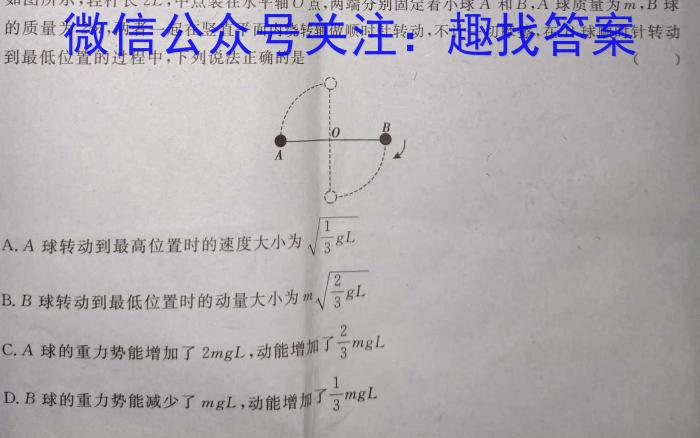 如图所示,轻杆长2L,中点装在水平轴O点,两端分别固定着小球A和B,A球质量为m,B球
的质量为 一起在竖直平面内绕转轴做顺时针转动,不 顺时针转动
微信公众号关注：趣找答案
到最低位置的过程中,下列说法正确的是 ( )
O
B
A
A. A 球转动到最高位置时的速度大小为 √(1/3 gL)
B. B 球转动到最低位置时的动量大小为 m√(2/3 gL)
C. A 球的重力势能增加了 2mgL,动能增加了 2/3 mgL
D. B 球的重力势能减少了 mgL,动能增加了 1/3 mgL